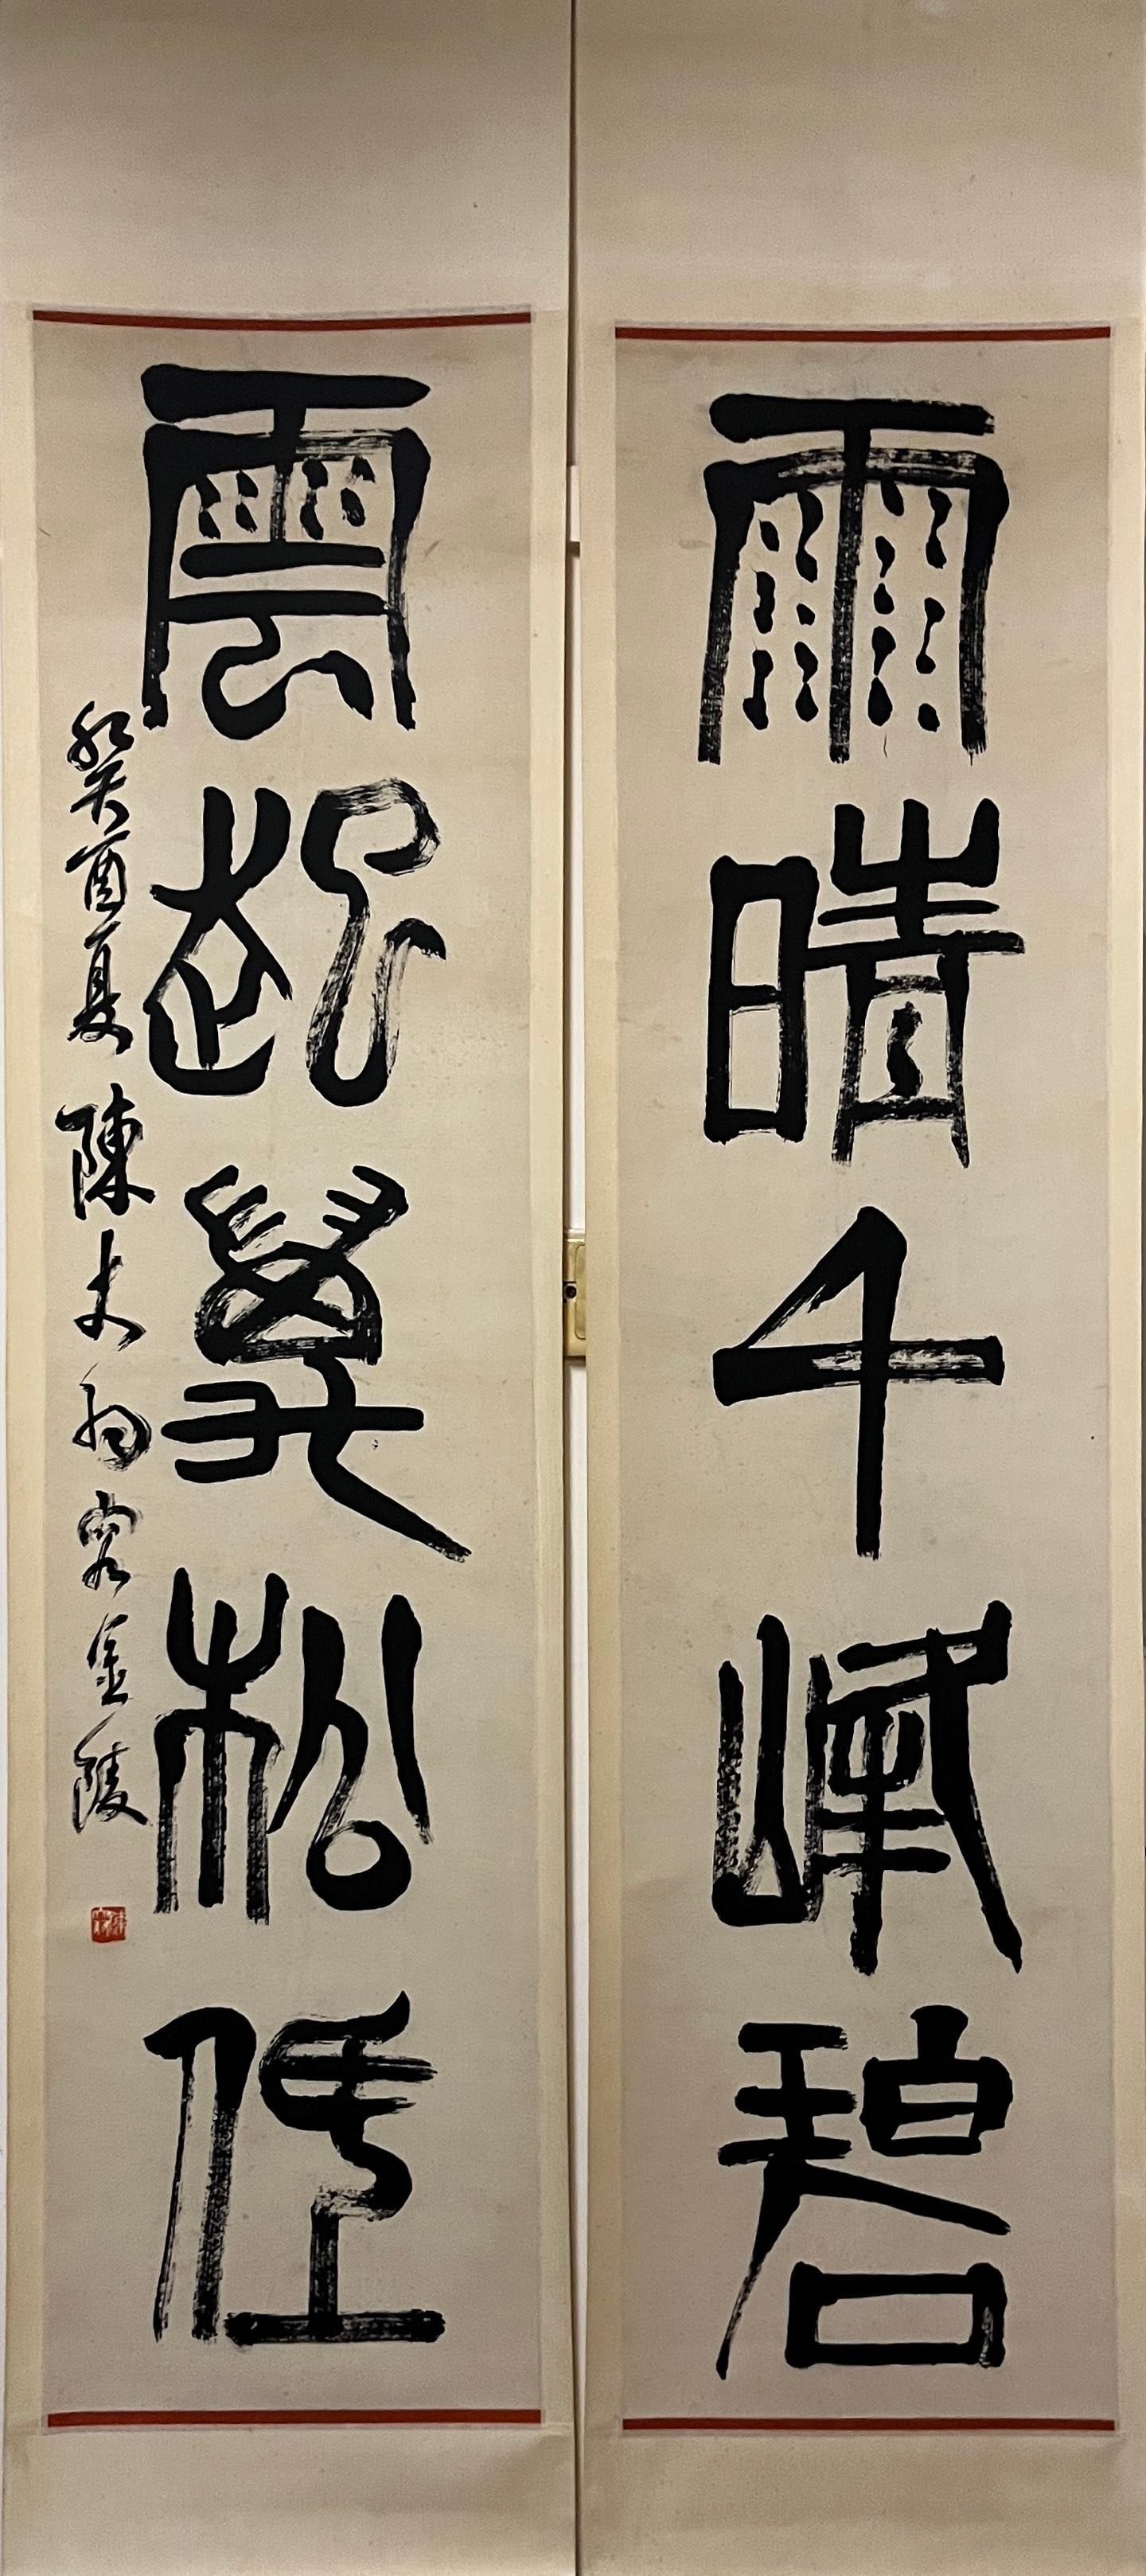 雨晴千峰碧
雲起萬松低
癸酉夏陳大羽客金陵